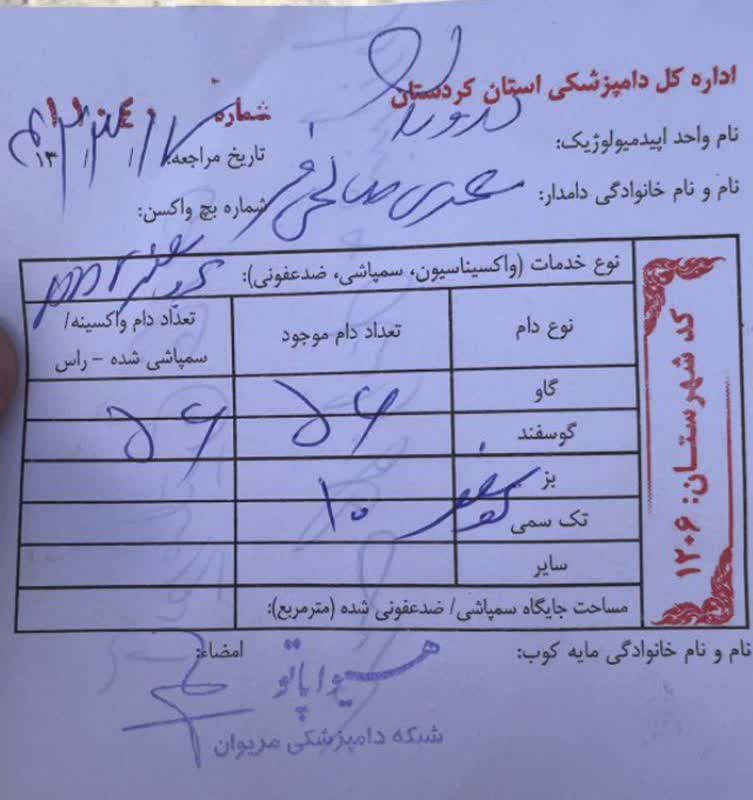 اداره کل دامپزشکی استان کردستان
شماره ۱۱۰۴۰
نام واحد اپیدمیولوژیک:
تاریخ مراجعه: ۱۳
نام و نام خانوادگی دامدار: صالحی فر
شماره بچ واکسن:
نوع خدمات (واکسیناسیون، سمپاشی، ضدعفونی):
نوع دام تعداد دام موجود تعداد دام واکسینه/ سمپاشی شده – راس
گاو
گوسفند
بز
تک سمی ۱۰
سایر
مساحت جایگاه سمپاشی/ ضدعفونی شده (مترمربع):
کد شهرستان: ۱۲۰۶
نام و نام خانوادگی مایه کوب:
امضاء:
هیوا پاتو
شبکه دامپزشکی مریوان